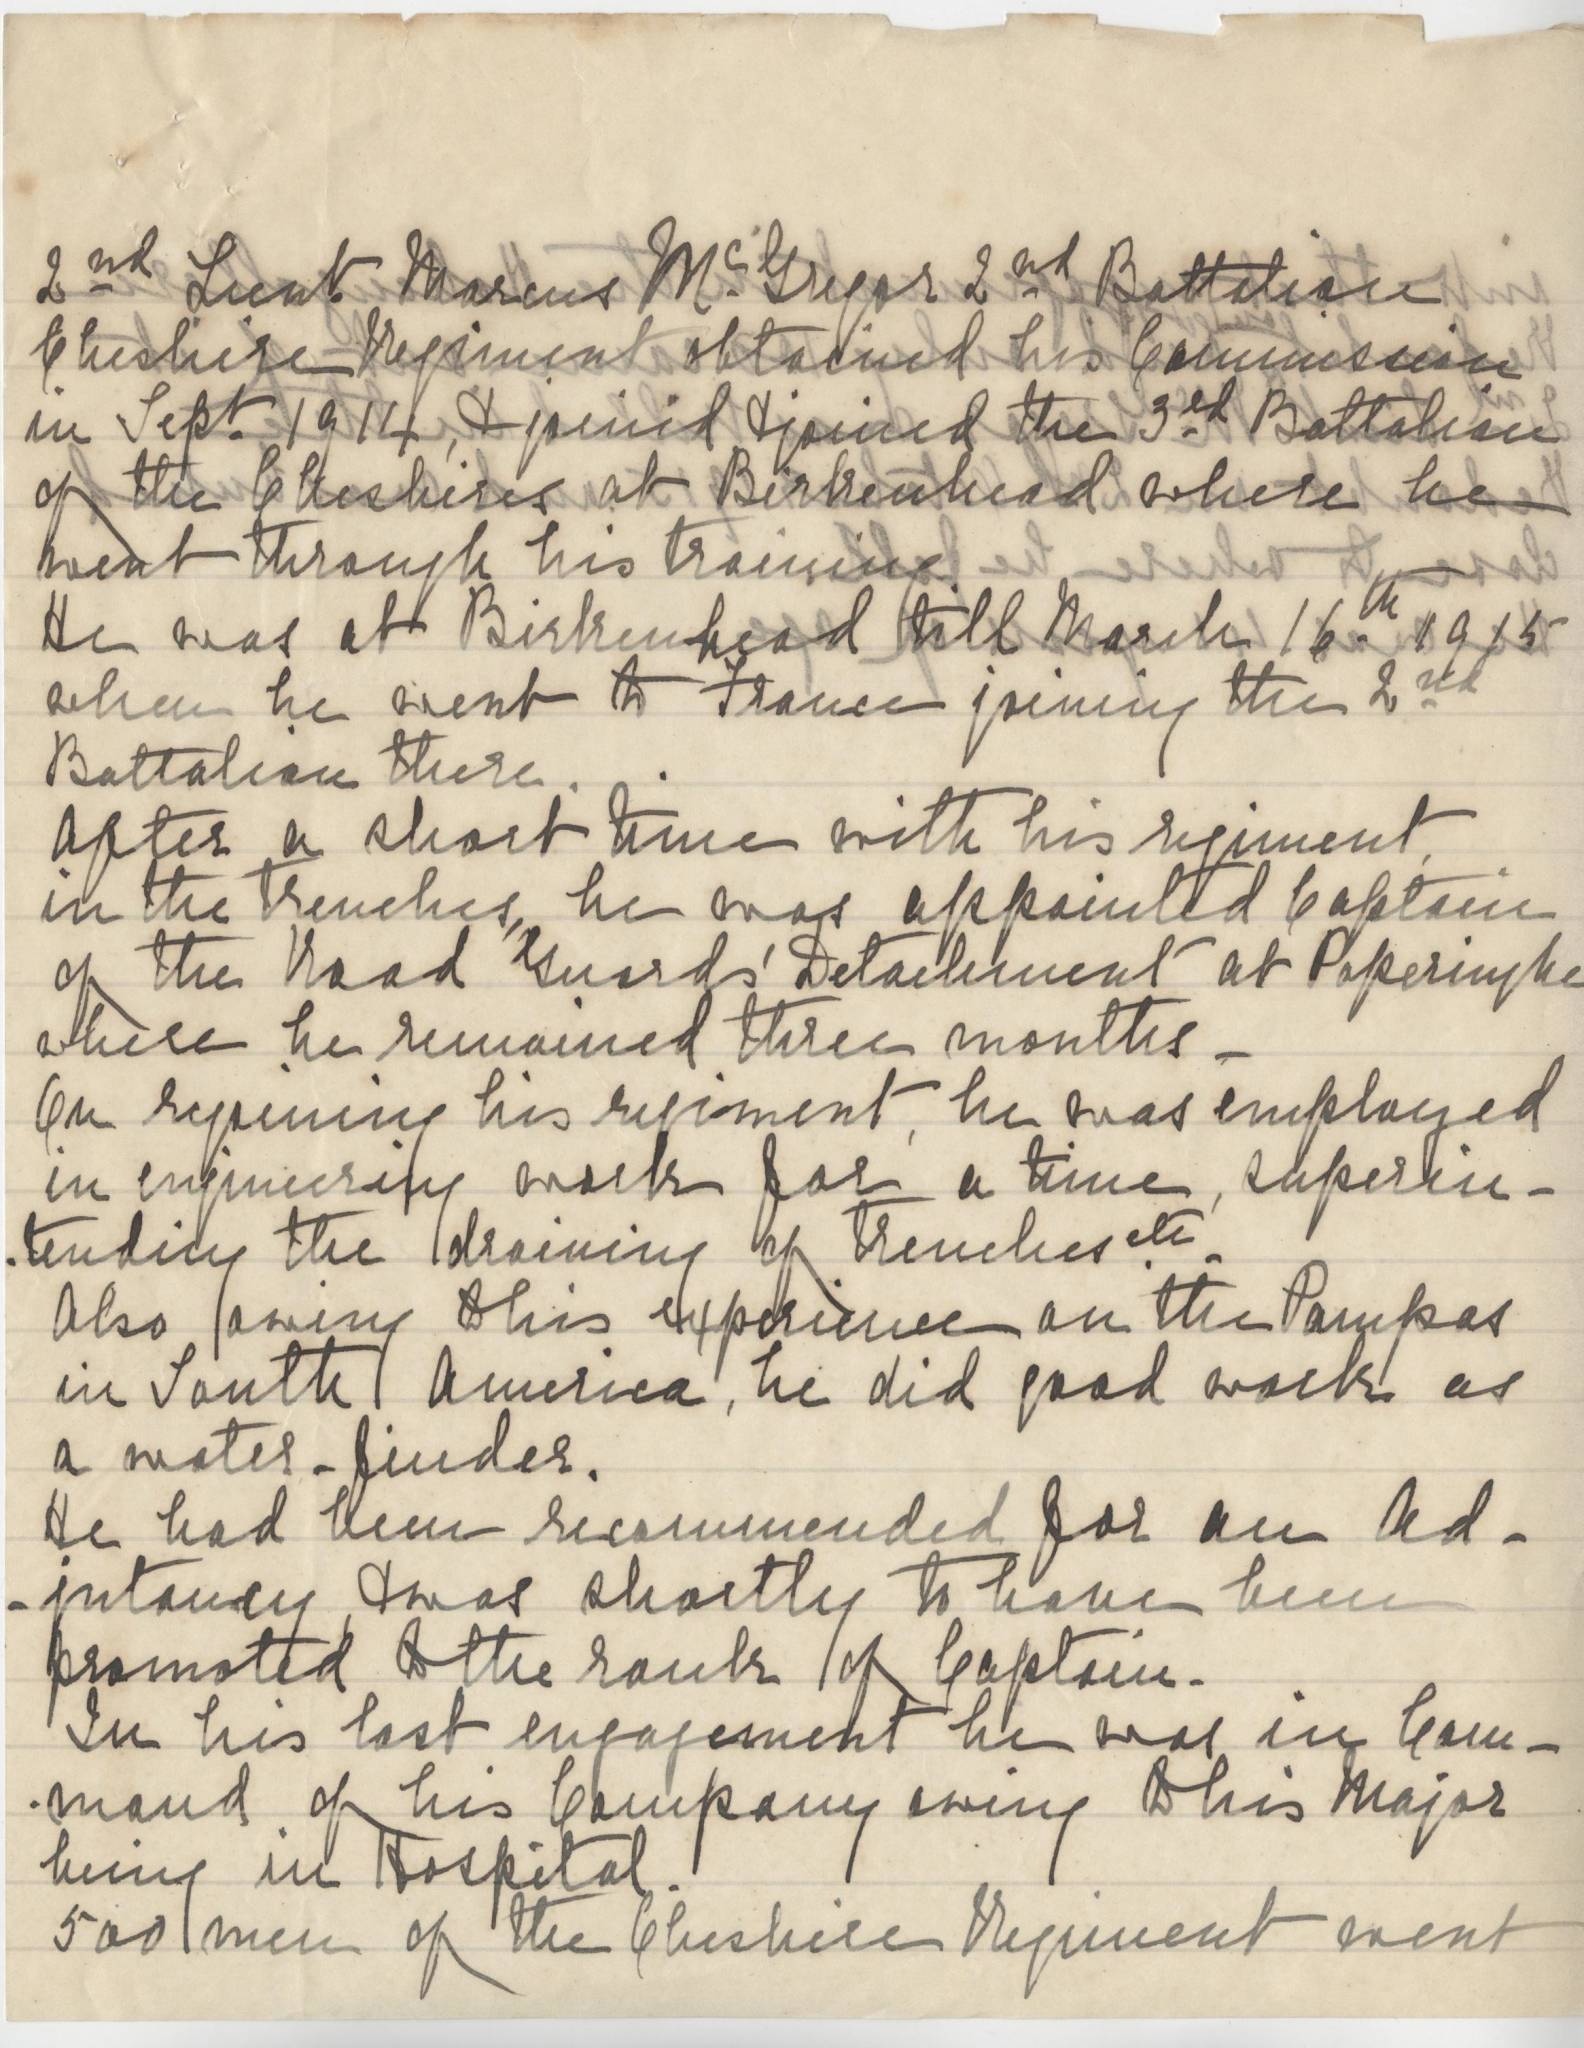 2nd Lieut. Marcus McGregor 2nd Battalion
Cheshire Regiment obtained his Commission
in Sept. 1914, & joined & joined the 3rd Battalion
of the Cheshires at Birkenhead where he
went through his training.
He was at Birkenhead till March 16th 1915
when he went to France joining the 2nd
Battalion there.
After a short time with his regiment,
in the trenches, he was appointed Captain
of the Road Guards' Detachment at Poperinghe
where he remained three months -
On rejoining his regiment, he was employed
in engineering work for a time, superin-
-tending the draining of trenches etc.
Also owing to his experience on the Pampas
in South America, he did good work as
a water-finder.
He had been recommended for an Ad-
-jutancy, & was shortly to have been
promoted to the rank of Captain.
In his last engagement he was in Com-
-mand of his Company owing to his Major
being in Hospital.
500 men of the Cheshire Regiment went